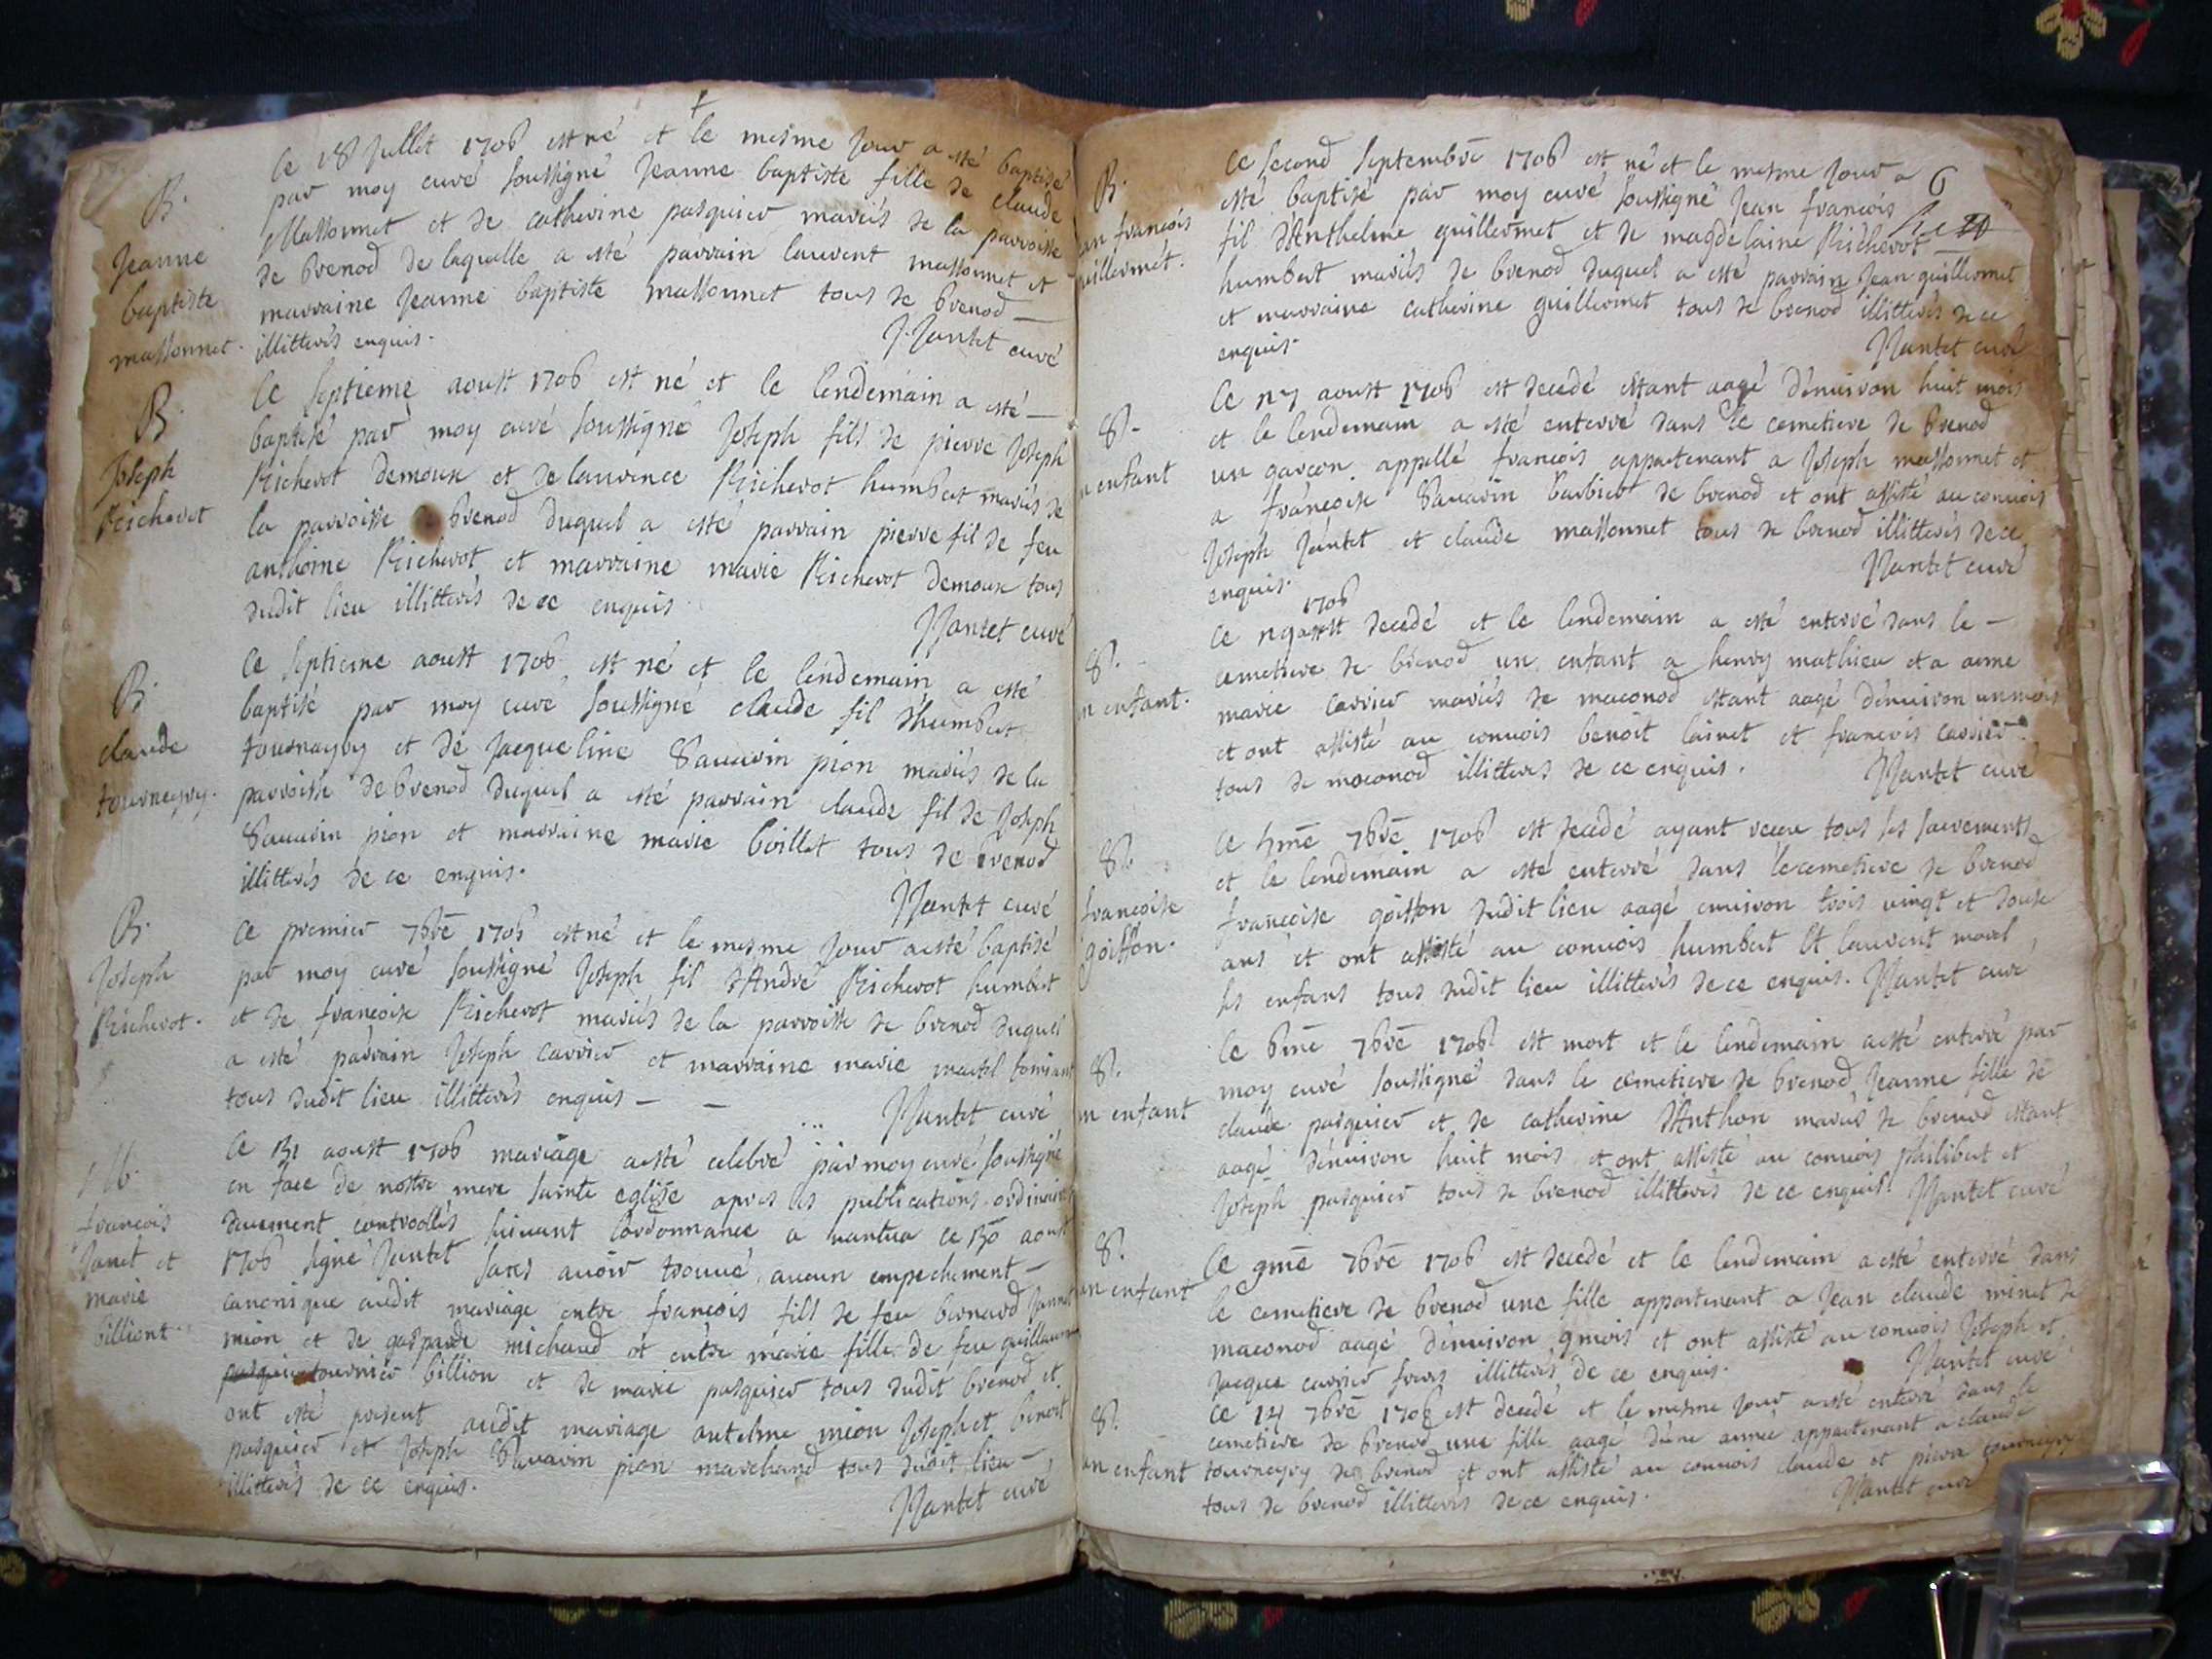 B.
Jeanne
baptiste
massonnet.
Ce 18 Juillet 1706 est né et le mesme Jour a esté baptisé
par moy curé soussigné Jeanne baptiste fille de claude
Massonnet et de catherine pasquier mariés de la parroisse
de brenod de laquelle a esté parrain laurent massonnet et
marraine Jeanne baptiste massonnet tous de brenod —
illitterés enquis.
J. Jantet curé
B.
Joseph
Richerot
Ce septieme aoust 1706 est né et le lendemain a esté —
baptisé par moy curé soussigné Joseph fils de pierre Joseph
Richerot demoux et de laurence Richerot humbert mariés de
la parroisse brenod duquel a esté parrain pierre fil de feu
anthoine Richerot et marraine marie Richerot demoux tous
dudit lieu illitterés de ce enquis
Jantet curé
B.
claude
tournayry.
Ce septieme aoust 1706 est né et le lendemain a esté
baptisé par moy curé soussigné claude fil d'humbert
tournayry et de Jacqueline Sauarin pion mariés de la
parroisse de brenod duquel a esté parrain claude fil de Joseph
Sauarin pion et marraine marie boillet tous de brenod
illitterés de ce enquis.
Jantet curé
B.
Joseph
Richerot.
Ce premier 7bre 1706 est né et le mesme Jour a esté baptisé
par moy curé soussigné Joseph fil d'André Richerot humbert
et de francoise Richerot mariés de la parroisse de brenod duquel
a esté parrain Joseph carrier et marraine marie martel
tous dudit lieu illitterés enquis — —
Jantet curé
M.
francois
Janet et
marie
billiont.
Ce 31 aoust 1706 mariage a esté celebré par moy curé soussigné
en face de nostre mere sainte eglise apres les publications ordinaires
duement controollés suiuant l'ordonnance a nantua ce 30 aoust
1706 signé Jantet sans auoir trouué aucun empechement —
canonique audit mariage entre francois fils de feu bernard Jannet
mion et de gasparde michaud et entre marie fille de feu guillaume
pasquier tournier billion et de marie pasquier tous dudit brenod et
ont esté present audit mariage antelme mion Joseph et benoit
pasquier et Joseph Sauarin pion marchand tous dudit lieu —
illitterés de ce enquis.
Jantet curé
6
B.
an francois
uillermet.
Ce second septembre 1706 est né et le mesme Jour a
esté baptisé par moy curé soussigné Jean francois
fil d'Anthelme guillermet et de magdelaine Richerot
humbert mariés de brenod duquel a esté parrain Jean guillermet
et marraine catherine guillermet tous de brenod illitterés de ce
enquis.
Jantet curé
S.
n enfant
Ce 17 aoust 1706 est decedé estant aagé d'enuiron huit mois
et le lendemain a esté enterré dans le cemetiere de brenod
un garcon appellé francois appartenant a Joseph massonnet et
a francoise Sauarin barbier de brenod et ont assisté au conuois
Joseph Jantet et claude massonnet tous de brenod illitterés de ce
enquis.
Jantet curé
S.
n enfant.
1706
Ce 19 aoust decedé et le lendemain a esté enterré dans le —
cemetiere de brenod un enfant a henry mathieu et a anne
marie carrier mariés de maconod estant aagé d'enuiron un mois
et ont assisté au conuois benoit lainet et francois carrier
tous de maconod illitterés de ce enquis.
Jantet curé
S.
francoise
goiffon.
Ce 5me 7bre 1706 est decedé ayant receu tous ses sacrements
et le lendemain a esté enterré dans le cemetiere de brenod
francoise goiffon dudit lieu aagé enuiron trois uingt et douze
ans et ont assisté au conuois humbert et laurent morel,
ses enfans tous dudit lieu illitterés de ce enquis. Jantet curé
S.
n enfant
Ce 6me 7bre 1706 est mort et le lendemain a esté enterré par
moy curé soussigné dans le cemetiere de brenod Jeanne fille de
claude pasquier et de catherine d'Anthon mariés de brenod estant
aagé d'enuiron huit mois et ont assisté au conuois philibert et
Joseph pasquier tous de brenod illitterés de ce enquis. Jantet curé
S.
un enfant
Ce 9me 7bre 1706 est decedé et le lendemain a esté enterré dans
le cemetiere de brenod une fille appartenant a Jean claude minet de
maconod aagé d'enuiron 9 mois et ont assisté au conuois Joseph et
Jacque carrier freres illitterés de ce enquis.
Jantet curé
S.
un enfant
Ce 14 7bre 1706 est decedé et le mesme Jour a esté enterré dans le
cemetiere de brenod une fille aagé d'une année appartenant a claude
tournayry de brenod et ont assisté au conuois claude et pierre tournayry
tous de brenod illitterés de ce enquis.
Jantet curé